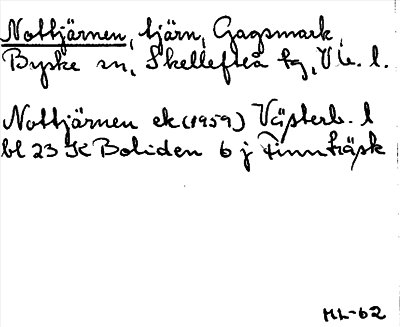 Nottjärnen, tjärn, Gagsmark,
Byske sn, Skellefteå kg, Vb. l.
Nottjärnen ek (1959) Västerb. l
bl 23 K Boliden 6 j Finnträsk
ML-62